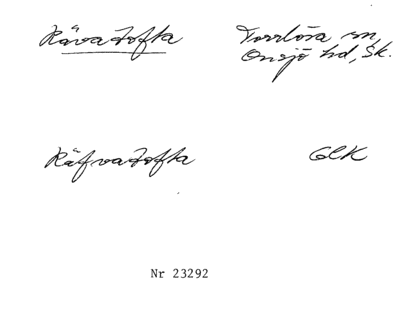 Rävatofta Torrlösa sn,
Onsjö hd, Sk.
Räfvatofta GEK
Nr 23292